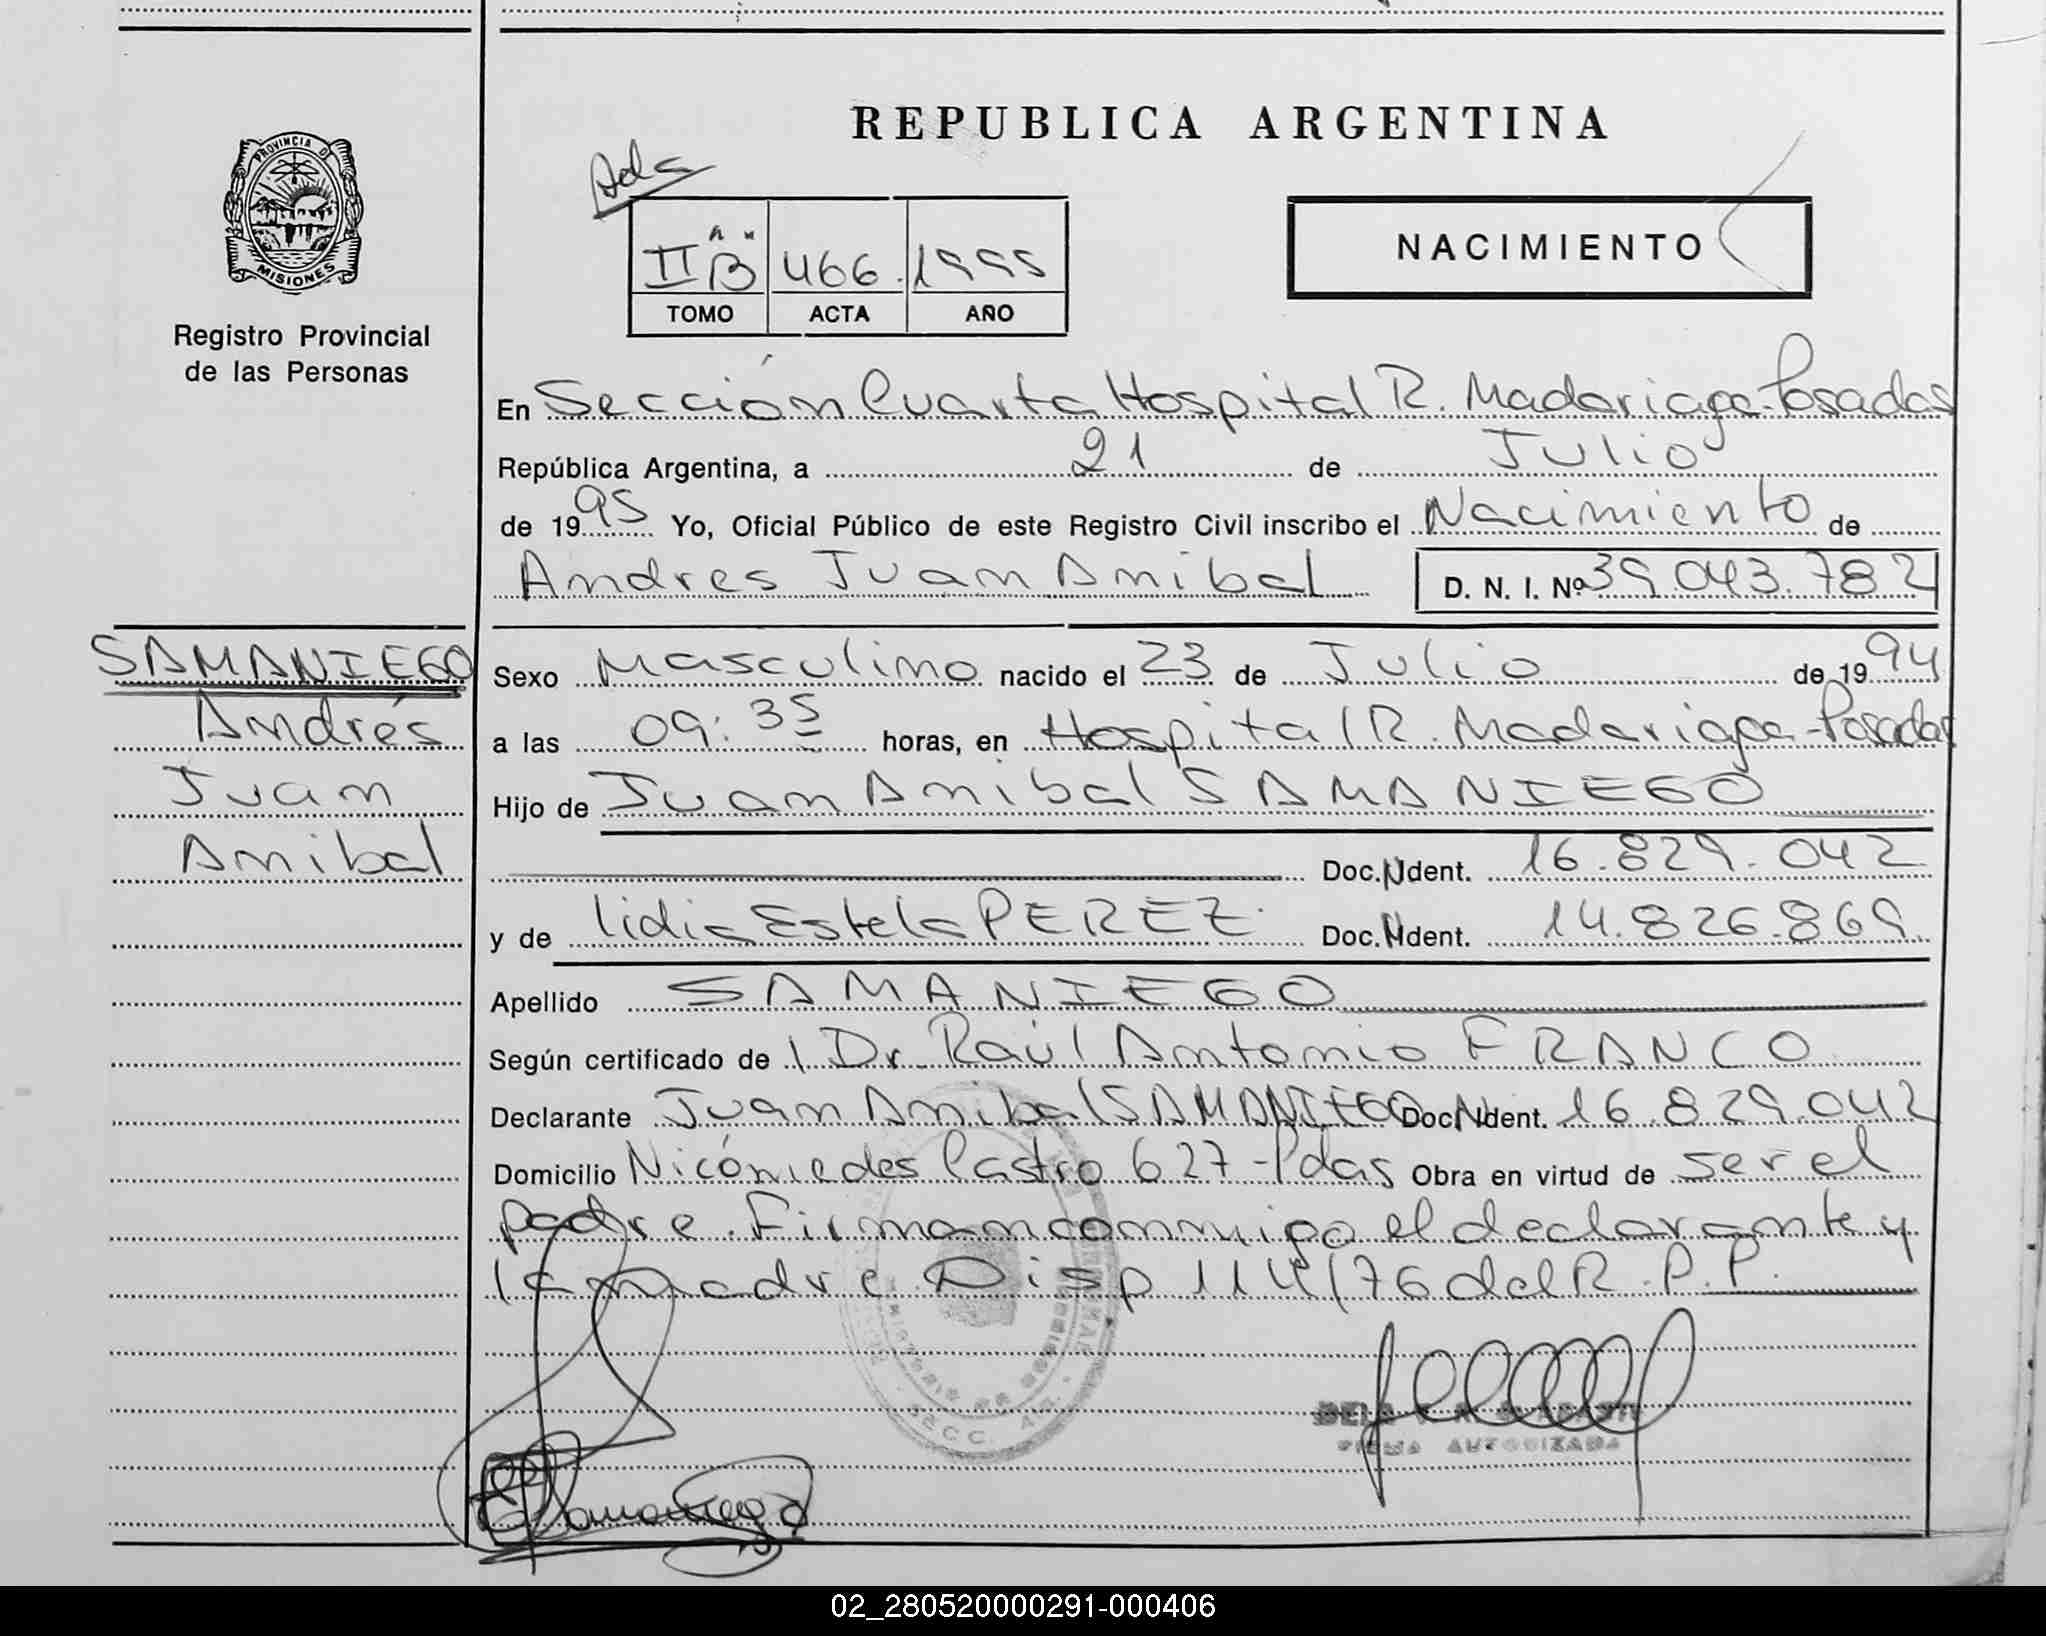 REPUBLICA ARGENTINA
PROVINCIA D
MISIONES
Registro Provincial
de las Personas
II "B" 466 1995
TOMO ACTA AÑO
NACIMIENTO
En Sección Cuarta Hospital R. Madariaga-Posadas
República Argentina, a 21 de Julio
de 1995 Yo, Oficial Público de este Registro Civil inscribo el Nacimiento de
Andres Juan Anibal D. N. I. Nº 39.043.782
SAMANIEGO
Andrés
Juan
Anibal
Sexo Masculino nacido el 23 de Julio de 1994
a las 09:35 horas, en Hospital R. Madariaga-Posadas
Hijo de Juan Anibal SAMANIEGO
Doc. Ident. 16.829.042
y de lidia Estela PEREZ Doc. Ident. 14.826.869
Apellido SAMANIEGO
Según certificado de l Dr. Raúl Antonio FRANCO
Declarante Juan Anibal SAMANIEGO Doc. Ident. 16.829.042
Domicilio Nicómedes Castro 627-Pdas Obra en virtud de ser el
padre. Firman conmigo el declarante y
la madre. Disp 114/76 del R.P.P.
SECC.
FIRMA AUTORIZADA
Samaniego
02_280520000291-000406